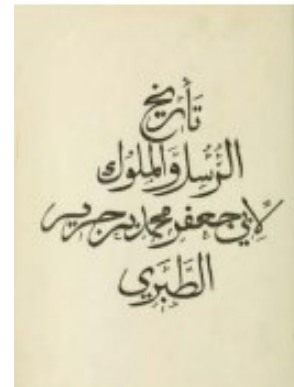 تأريخ
الرُسُل وَالملوك
لأبي جعفر محمد بن جرير
الطَّبَرِي